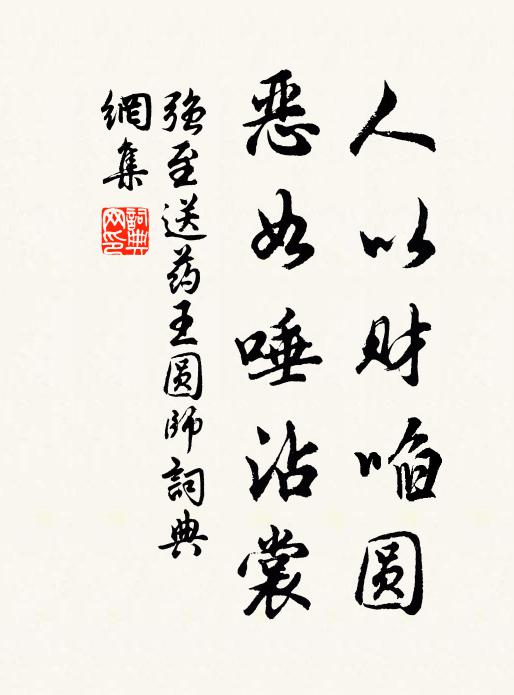 人以财啗圆
恶如唾沾裳
强至送药王圆师詞典
網集
詞典网印